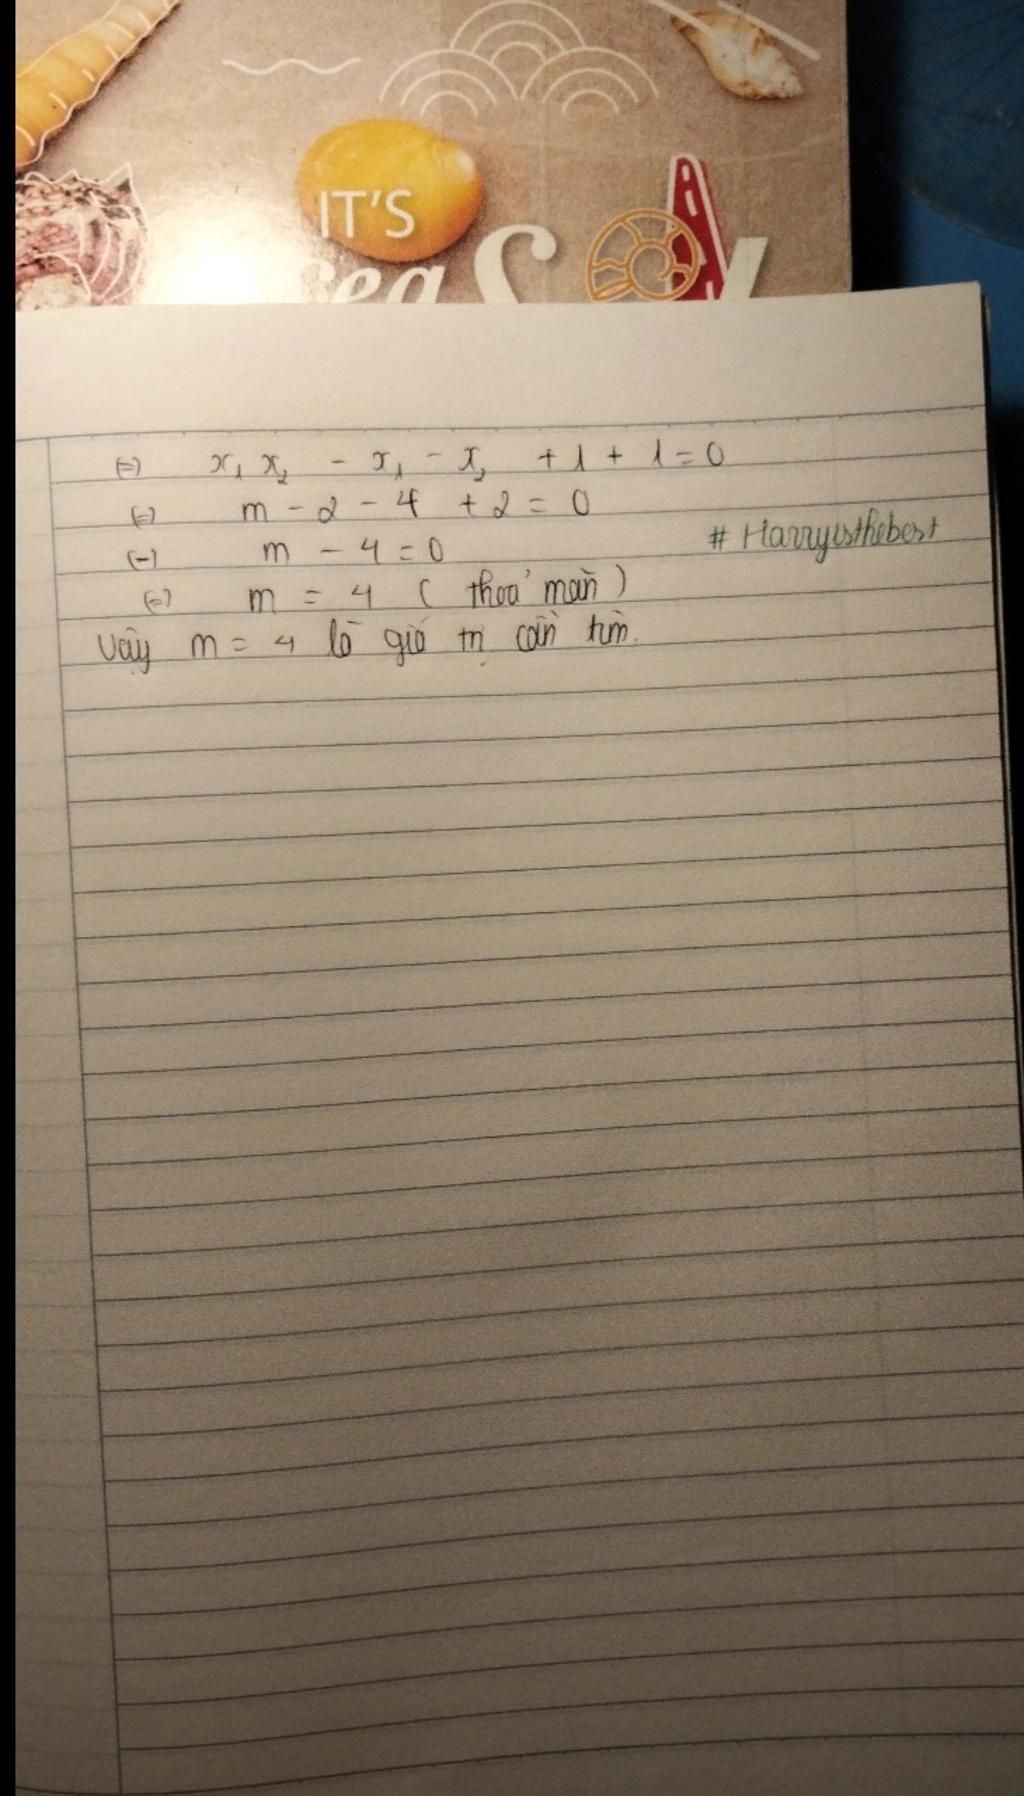 IT'S
sea
(=) x₁ x₂ - x₁ - x₂ + 1 + 1 = 0
(=) m - 2 - 4 + 2 = 0
(=) m - 4 = 0
# Harryisthebest
(=) m = 4 ( thoả mãn )
Vậy m = 4 là giá trị cần tìm.